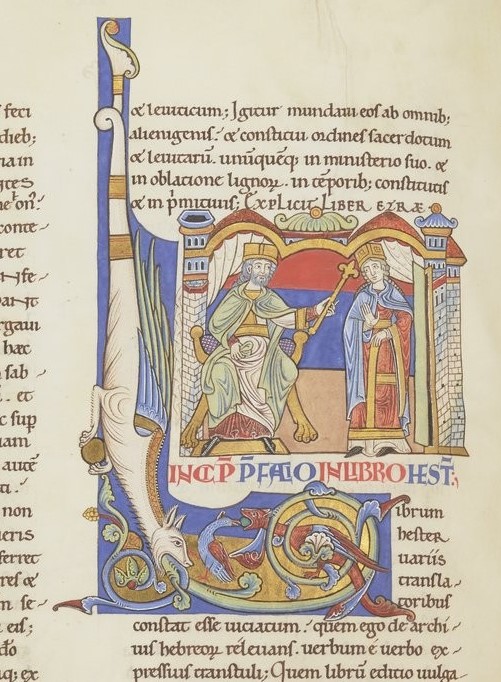 feci
dieb;
ria in
conte-
ret
nfe-
rgaui
hæc
sab
. et
c sup
iam
autē
ti.
non
ueris
ferret
res &
m se-
eis;
q; ex
& leuiticum; Igitur mundaui eos ab omnib;
alienigenis. & constitui ordines sacerdotum
& leuitarū. unūquēq; in ministerio suo. &
in oblatione lignoꝝ. in tēporib; constitutis
& in p̄mitiuis; EXPLICIT LIBER EZRÆ
INCP̄ P̄FATIO IN LIBRO HEST̄;
Librum
hester
uariis
transla-
toribus
constat esse uiciatum. quem ego de archi-
uis hebreoꝝ releuans. uerbum e uerbo ex-
pressius transtuli; Quem librū editio uulga-